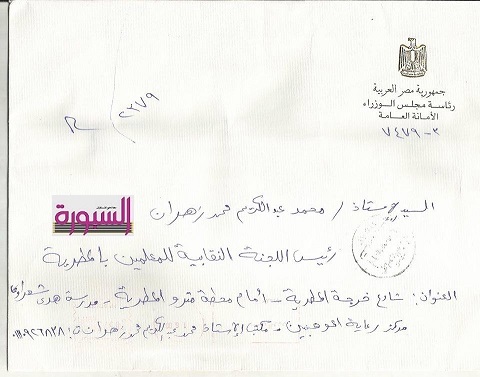 جمهورية مصر العربية
رئاسة مجلس الوزراء
الأمانة العامة
٧٤٧٩-٣
٢٣٧٩
السبورة
السيد الأستاذ / محمد عبدالكريم محمد زهران
رئيس اللجنة النقابية للمعلمين بالمطرية
العنوان: شارع خرجة المطرية - أمام محطة مترو المطرية - مدرسة هدى شعراوى
مركز رعاية الموهوبين - مكتب الأستاذ محمد عبدالكريم محمد زهران ت: